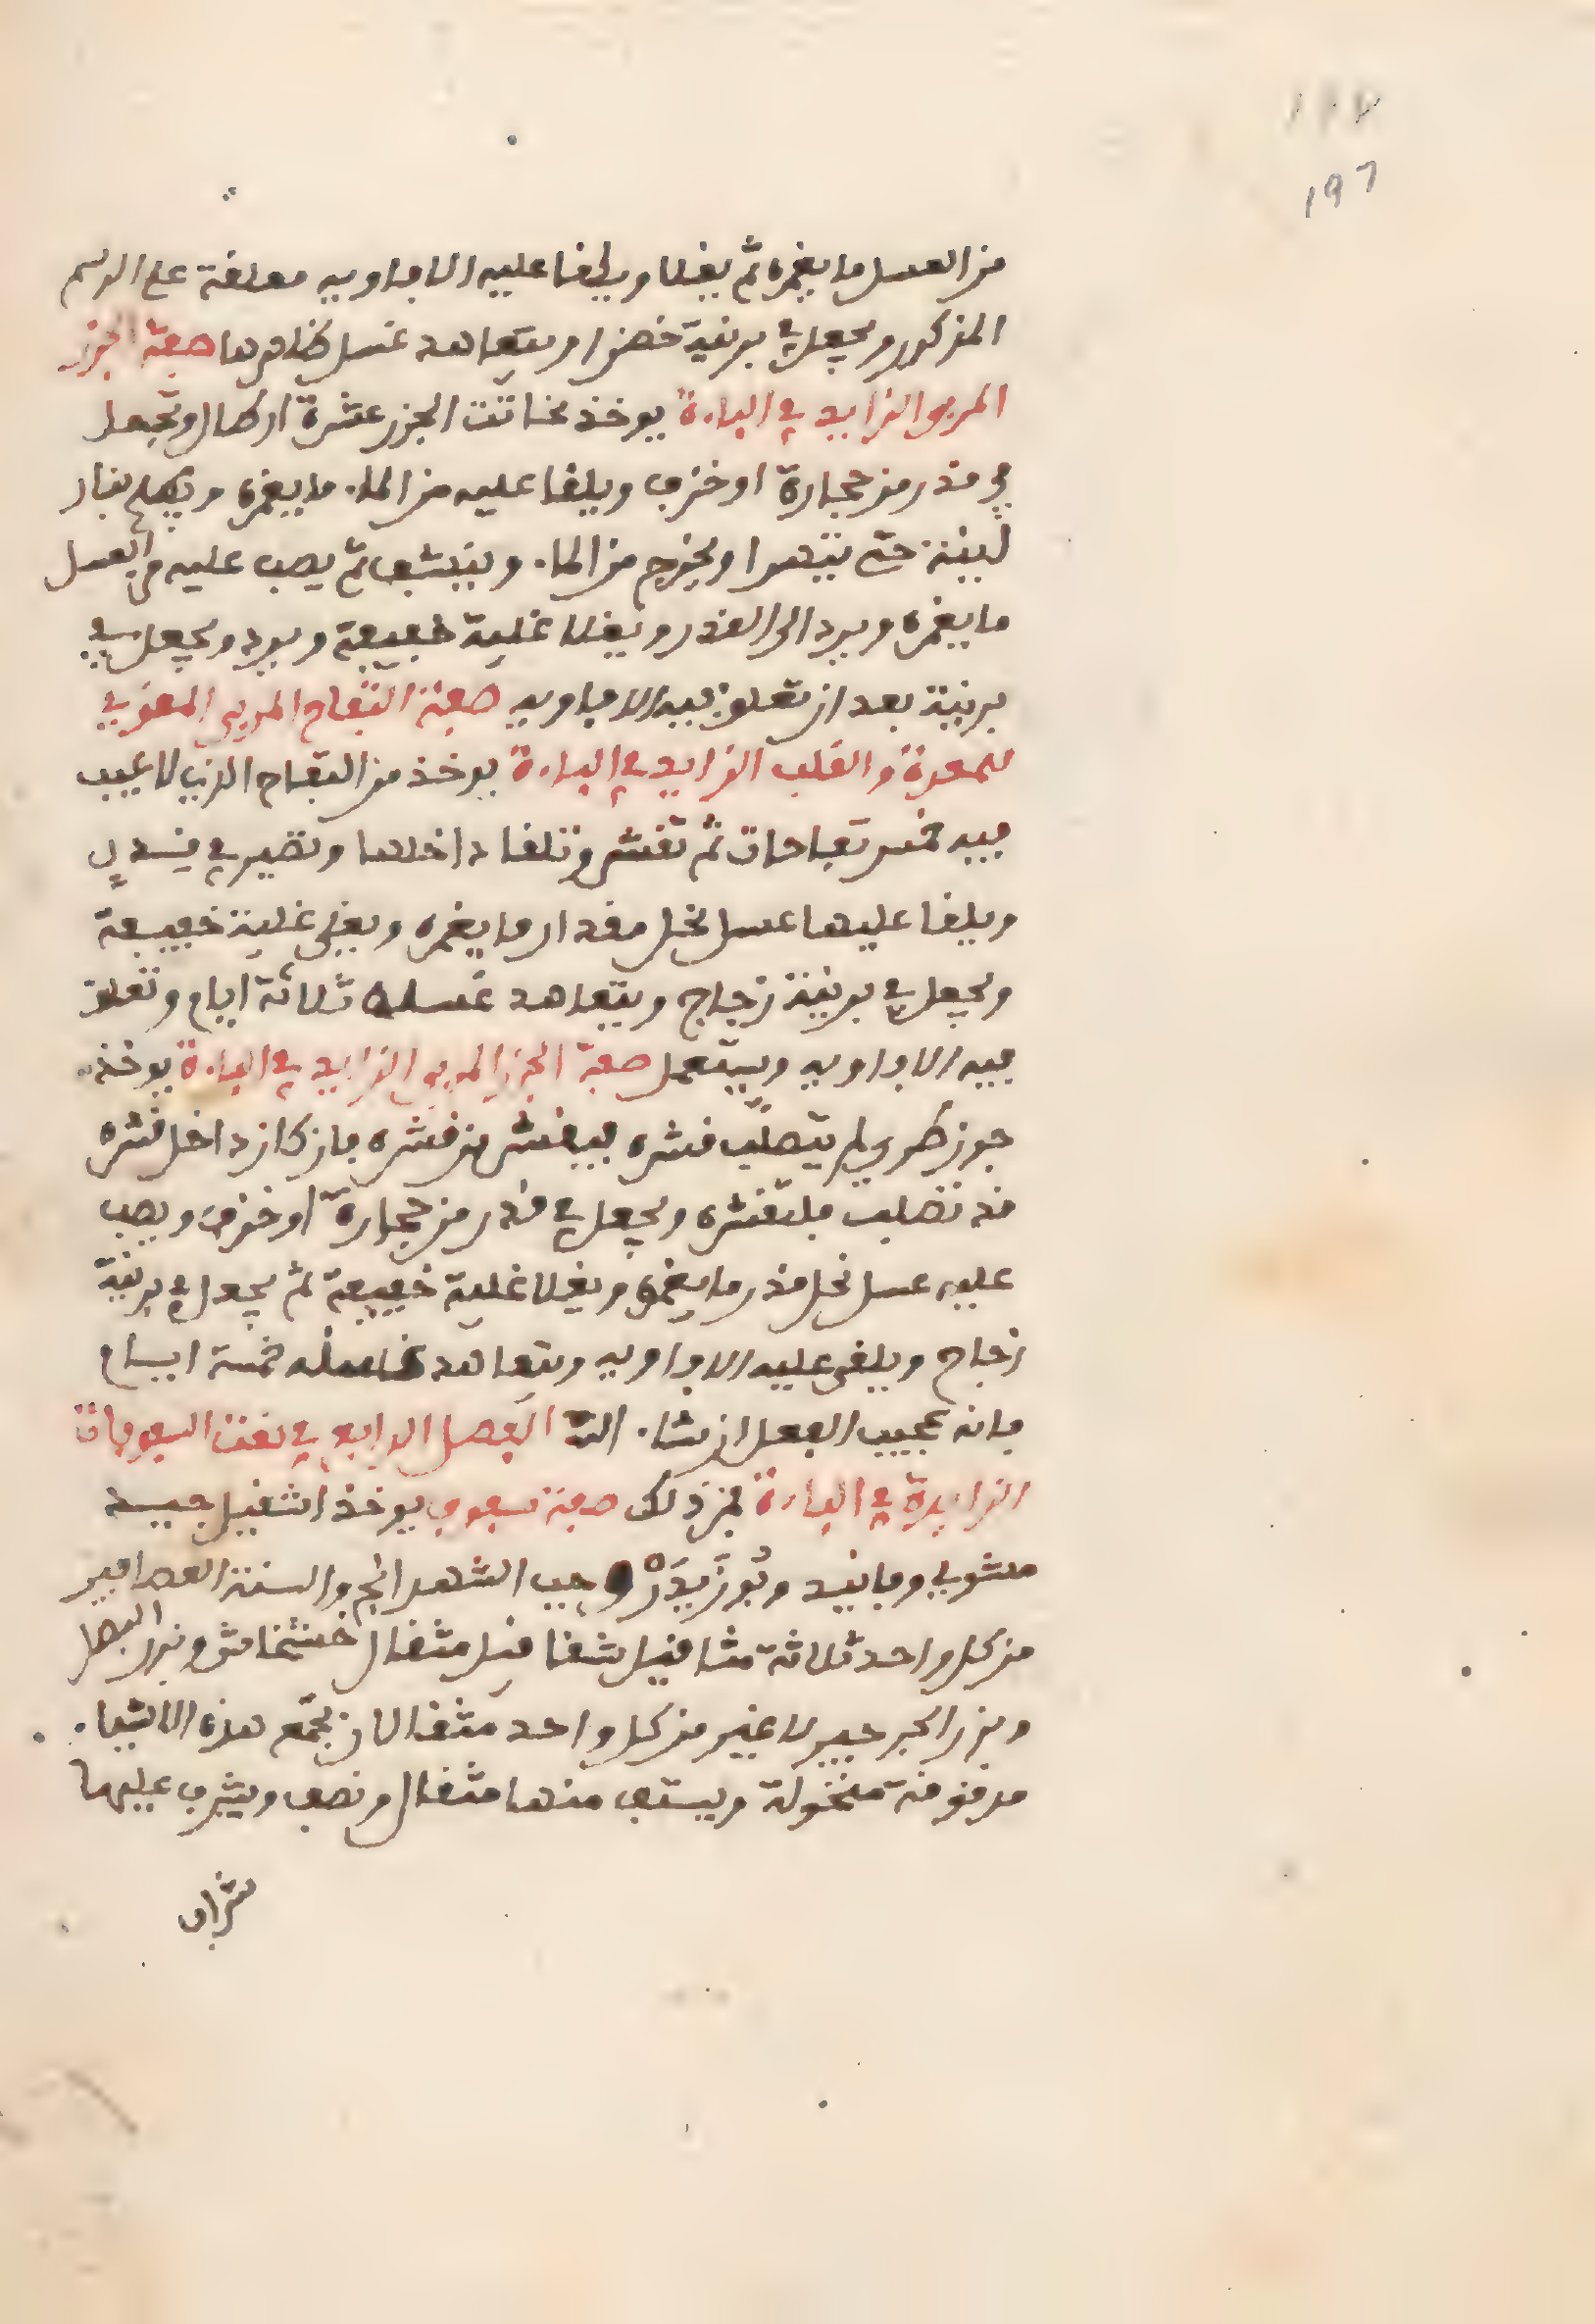 ١٩٦
من العسل ما يغمره ثم يغلا ويلقا عليه الافاويه معلقة على الرسم
المذكور ويجعل في برنية خضرا ويتعاهد غسل ظاهرها صفة الجزر
المربى الزايد في الباءة يوخذ نحاتت الجزر عشرة ارطال وتجعل
في قدر من حجارة او خزف ويلقا عليه من الماء ما يغمره ويطبخ بنار
لينة حتى يتهرا ويخرج من الماء وينشف ثم يصب عليه من العسل
ما يغمره ويرد الى القدر ويغلا غلية خفيفة ويبرد ويجعل في
برنية بعد ان تعلق فيه الافاويه صفة التفاح المربى المقوي
للمعدة والقلب الزايد في الباءة يوخذ من التفاح الذي لا عيب
فيه خمس تفاحات ثم تقشر وتلقا داخلها وتصير في
ويلقا عليها عسل نحل مقدار ما يغمره ويغلى غلية خفيفة
ويجعل في برنية زجاج ويتعاهد غسله ثلاثة ايام وتعلق
فيه الافاويه ويستعمل صفة الجوز المربى الزايد في الباءة يوخذ
جوز طري لم يتصلب قشره فيقشر من قشره فان كان داخل قشره
قد تصلب فلتقشره ويجعل في قدر من حجارة او خزف ويصب
عليه عسل نحل قدر ما يغمره ويغلا غلية خفيفة ثم يجعل في برنية
زجاج ويلقى عليه الافاويه ويتعاهد غسله خمسة ايام
فانه عجيب الفعل ان شاء الله الفصل الرابع في نعت السفوفات
الزايدة في الباءة فمن ذلك صفة سفوف يوخذ اشقيل جيد
مشوي وفانيد وبوزيدر وحب الشهدانج والسنة العصافير
من كل واحد ثلاثة مثاقيل شقاقيل مثقال خشخاش وبزر البصل
وبزر الجرجير لا غير من كل واحد مثقالان تجمع هذه الاشياء
مدقوقة منخولة ويستف منها مثقال ونصف ويشرب عليها
شراب